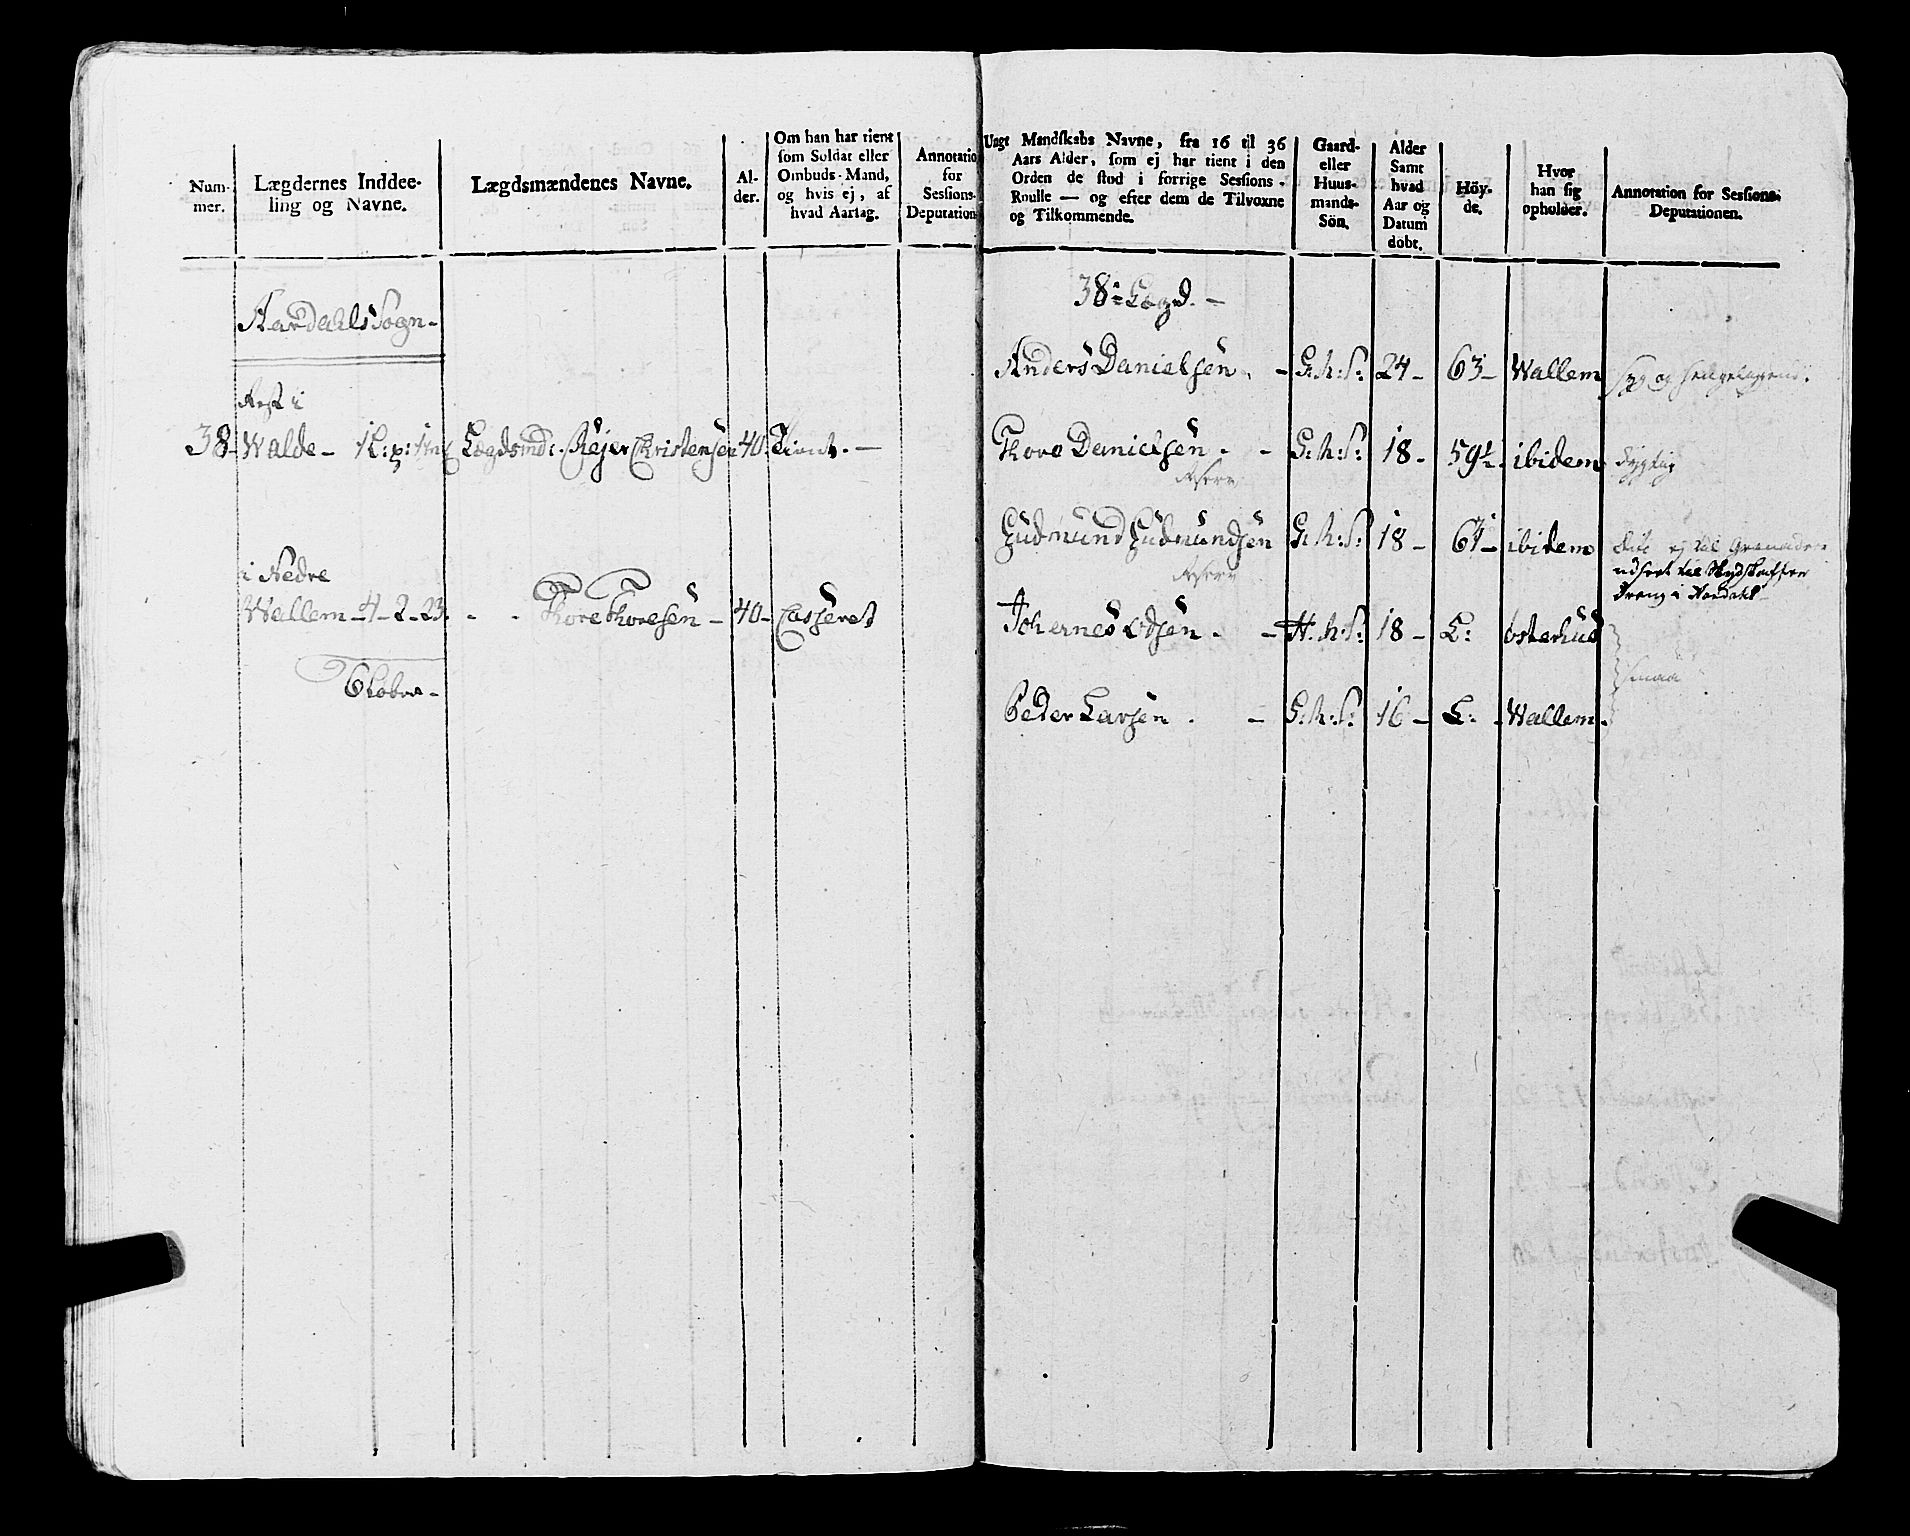 Num-
mer.
Lægdernes Inddee-
ling og Navne.
Lægdsmændenes Navne.
Al-
der.
Om han har tient
som Soldat eller
Ombuds-Mand,
og hvis ej, af
hvad Aarsag.
Annotatio
for
Sessions-
Deputation
Aardahls Sogn-
Rest i
38- Walde- 1L: p: Lægdsmd: Rejer Christensen 40. Tient. -
i Nedre
Wallem - 4 - 2 - 23. - - Thore Thoresen - 40- Casseret
6 Løber-
Ungt Mandskabs Navne, fra 16 til 36
Aars Alder, som ej har tient i den
Orden de stod i forrige Sessions-
Roulle — og efter dem de Tilvoxne
og Tilkommende.
Gaard-
eller
Huus-
mands-
Sön.
Alder
Samt
hvad
Aar og
Datum
dobt.
Höy-
de.
Hvor
han sig
opholder.
Annotation for Sessions-
Deputationen.
38te Lægd. -
Anders Danielsen. - G: M: S: 24 - 63 - Wallem Syg og sengeliggend.
Thore Danielsen. - G: M: S: 18 - 59½. ibidem dygtig
Reserv
Gudmund Gudmundsen G: M: S: 18 - 61 - ibidem ej til Grenader
Reserv
udsat til Skydskaffer
Dreng i Aardahl
Johannes Odsen. - H: M: S: 18 - L: Østerhus
smaa
Peder Larsen. - G: M: S: 16 - L: - Wallem.